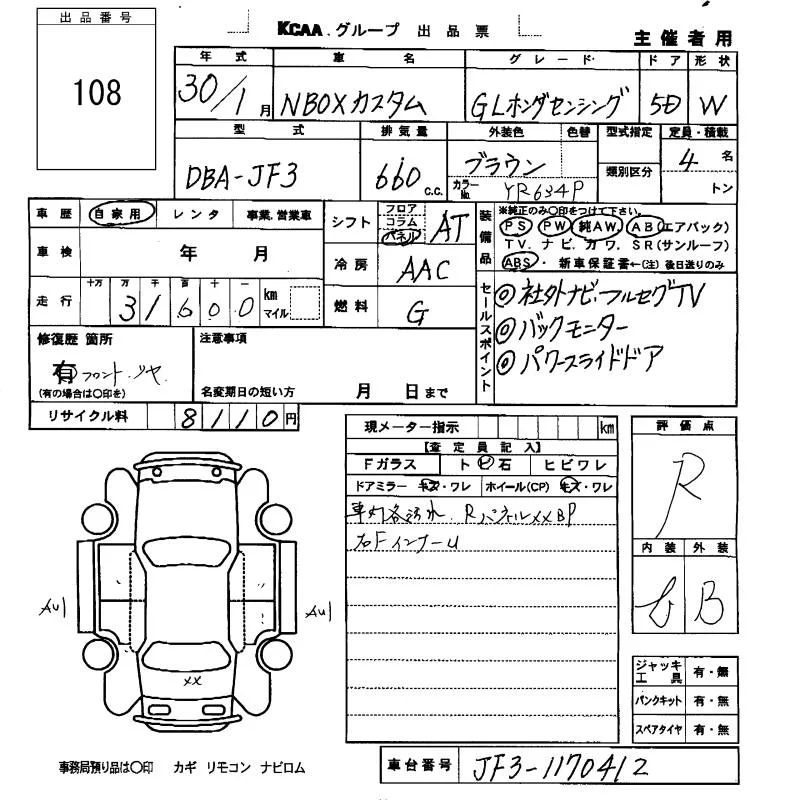 出品番号
108
KCAA.グループ 出品票
主催者用
年式 車名 グレード ドア 形状
30/1月 NBOXカスタム GLホンダセンシング 5D W
型式 排気量 外装色 色替 型式指定 定員・積載
類別区分
DBA-JF3 660 c.c. ブラウン 4名
カラーNo. YR634P トン
車歴 自家用 レンタ 事業.営業車
シフト フロア コラム パネル AT
装備品 ※純正のみ〇印をつけて下さい。
PS PW 純AW. AB(エアバック)
TV. ナビ. カワ. SR(サンルーフ)
ABS・ 新車保証書←(注)後日送りのみ
車検 年 月
冷房 AAC
走行 十万 万 千 百 十 一 km マイル
31600
燃料 G
セールスポイント
◎社外ナビ・フルセグTV
◎バックモニター
◎パワースライドドア
修復歴 箇所
有 フロント.リヤ.
(有の場合は〇印を)
注意事項
名変期日の短い方 月 日まで
リサイクル料 8110円
現メーター指示 km
【査定員記入】
Fガラス ト ビ 石 ヒビワレ
ドアミラー キズ・ワレ ホイール(CP) キズ・ワレ
車内各汚れ. RパネルXXBP
右FインナーU
評価点
R
内装 外装
B
AU1
AU1
XX
ジャッキ工具 有・無
パンクキット 有・無
スペアタイヤ 有・無
事務局預り品は〇印 カギ リモコン ナビロム
車台番号 JF3-1170412